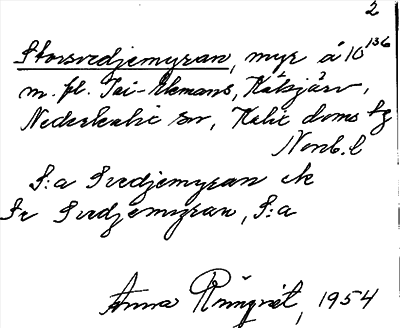 2
Storsvedjemyran, myr å 10 136
m. fl. Tai-Ekmans, Räktjärv,
Nederkalix sn, Kalix doms tg
Norrb. l
S:a Svedjemyran ek
Fr Svedjemyran, S:a
Anna Rönqvist, 1954